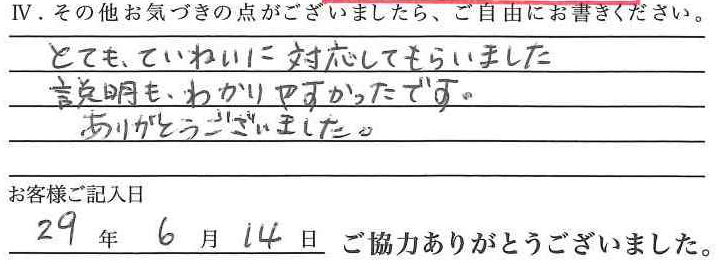 Ⅳ．その他お気づきの点がございましたら、ご自由にお書きください。
とても、ていねいに対応してもらいました
説明も、わかりやすかったです。
ありがとうございました。
お客様ご記入日
29 年 6 月 14 日 ご協力ありがとうございました。